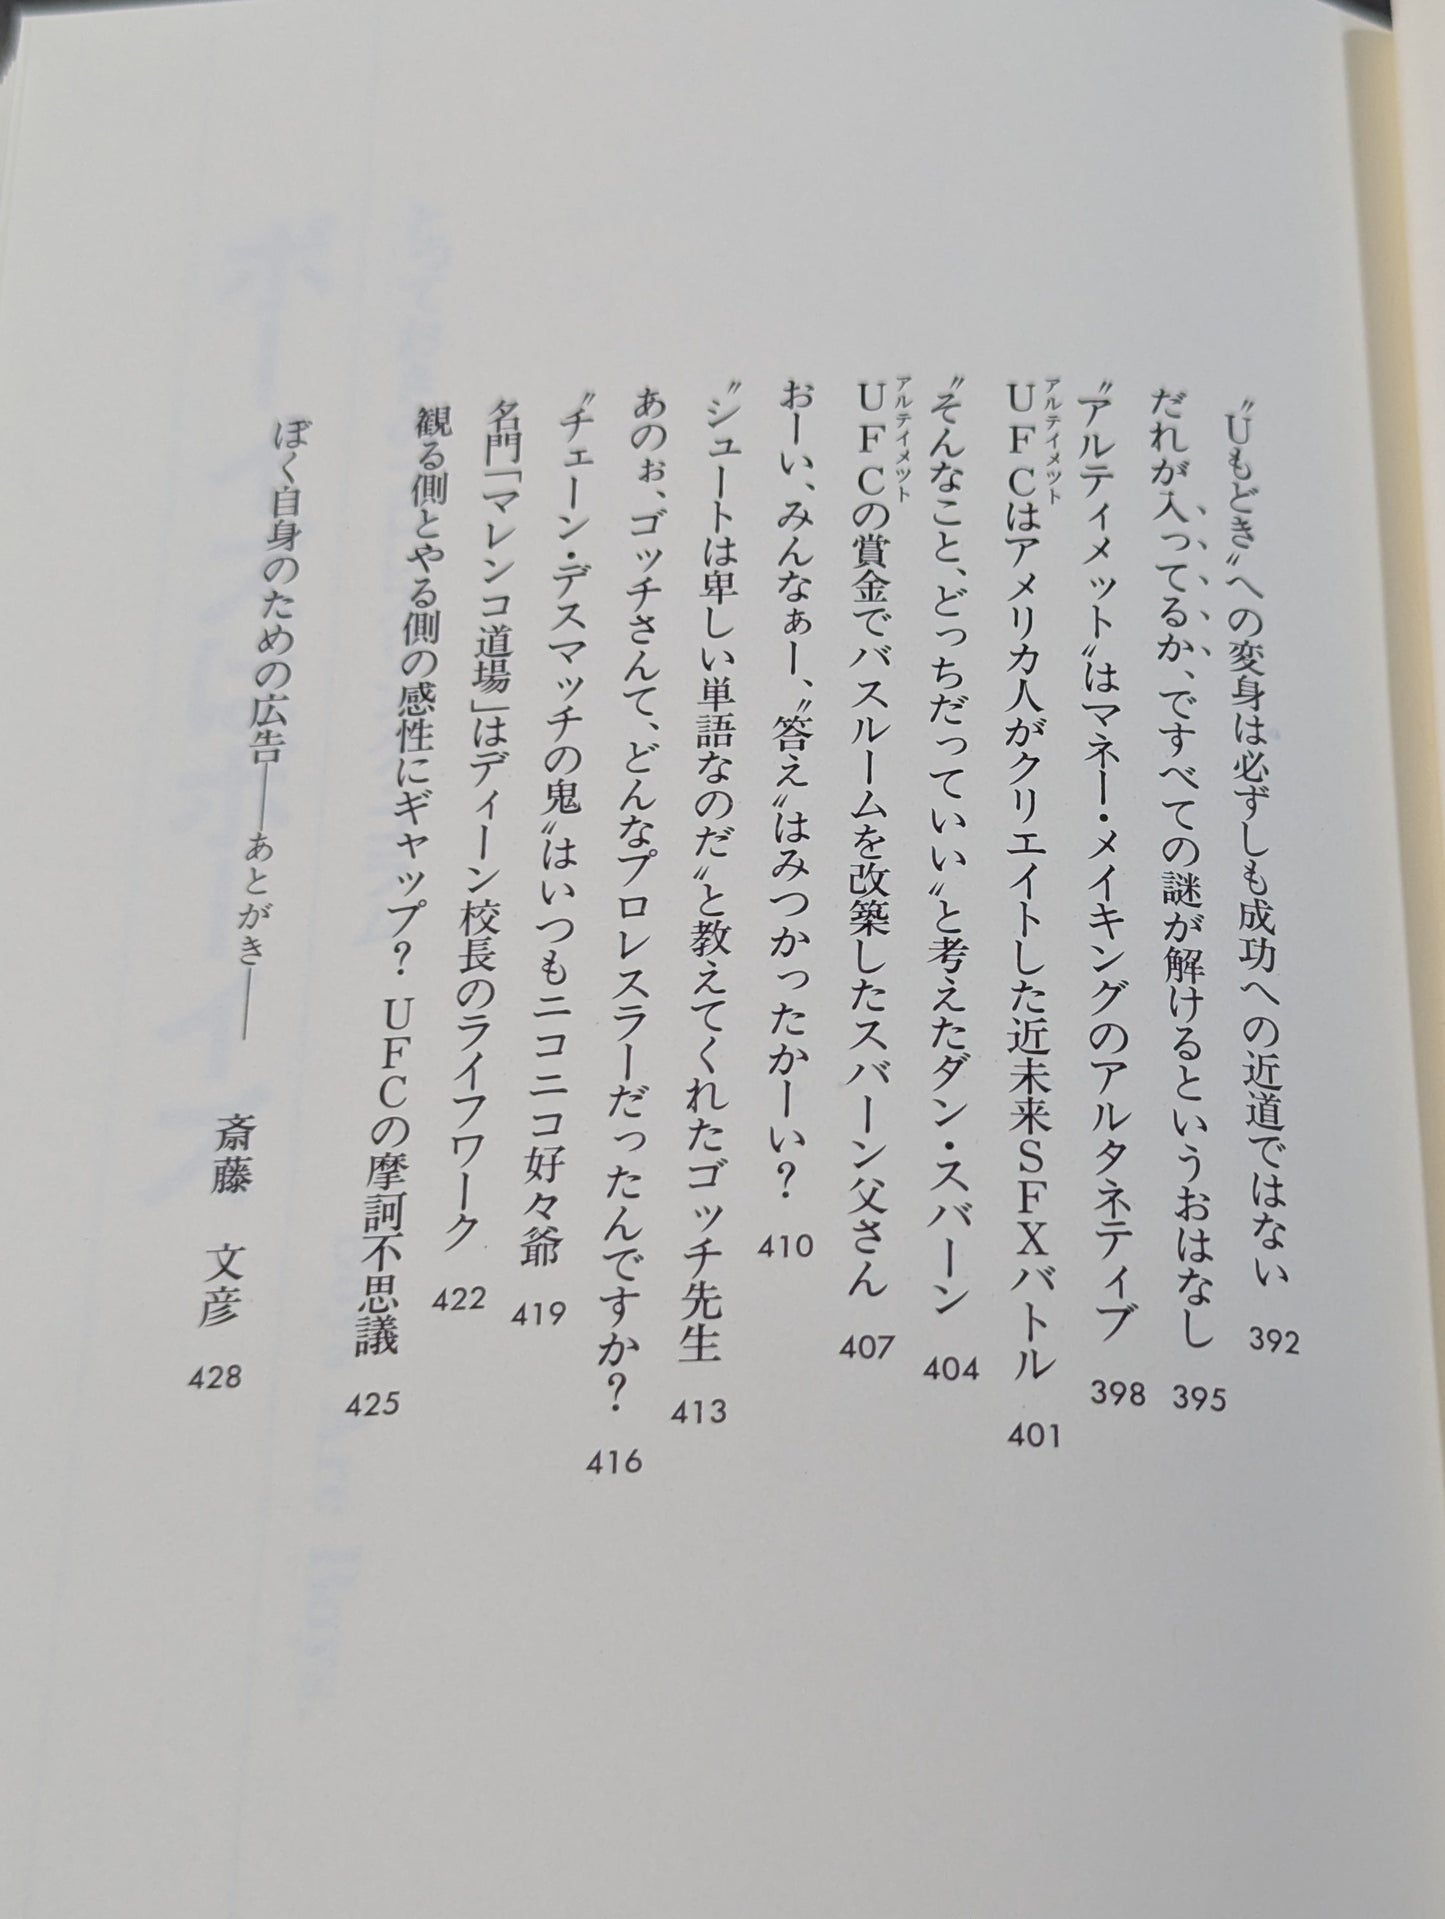 〝Uもどき〟への変身は必ずしも成功への近道ではない 392
だれが入ってるか、ですべての謎が解けるというおはなし 395
〝アルティメット〟はマネー・メイキングのアルタネティブ 398
アルティメット
UFCはアメリカ人がクリエイトした近未来SFXバトル 401
〝そんなこと、どっちだっていい〟と考えたダン・スバーン 404
アルティメット
UFCの賞金でバスルームを改築したスバーン父さん 407
おーい、みんなぁー、〝答え〟はみつかったかーい? 410
〝シュートは卑しい単語なのだ〟と教えてくれたゴッチ先生 413
あのぉ、ゴッチさんて、どんなプロレスラーだったんですか? 416
〝チェーン・デスマッチの鬼〟はいつもニコニコ好々爺 419
名門「マレンコ道場」はディーン校長のライフワーク 422
観る側とやる側の感性にギャップ? UFCの摩訶不思議 425
ぼく自身のための広告――あとがき―― 斎藤 文彦 428